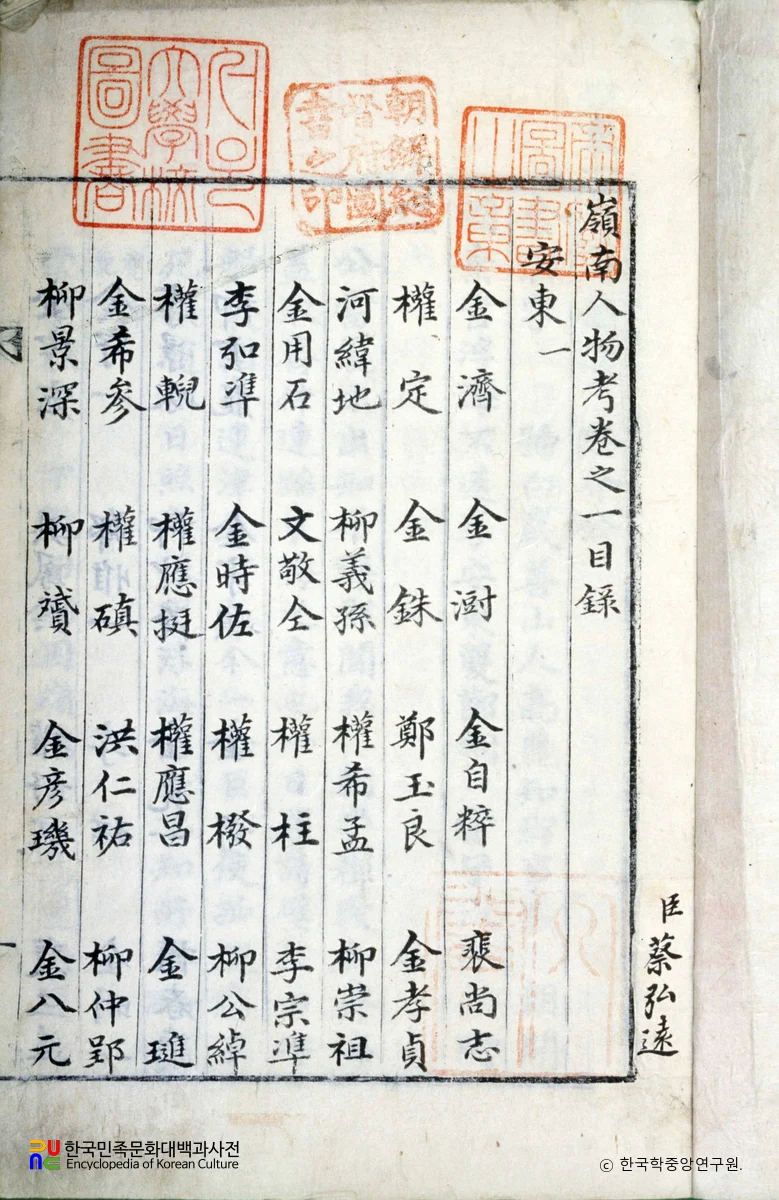 臣蔡弘遠
嶺南人物考卷之一目錄
安東一
金濟 金澍 金自粹 裵尚志
權定 金銖 鄭玉良 金孝貞
河緯地 柳義孫 權希孟 柳崇祖
金用石 文敬仝 權柱 李宗準
李弘準 金時佐 權橃 柳公綽
權輗 權應挺 權應昌 金璡
金希參 權磌 洪仁祐 柳仲郢
柳景深 柳贇 金彦璣 金八元
帝室圖書之章
朝鮮總督府圖書之印
서울大學校圖書
한국민족문화대백과사전
Encyclopedia of Korean Culture
ⓒ 한국학중앙연구원.